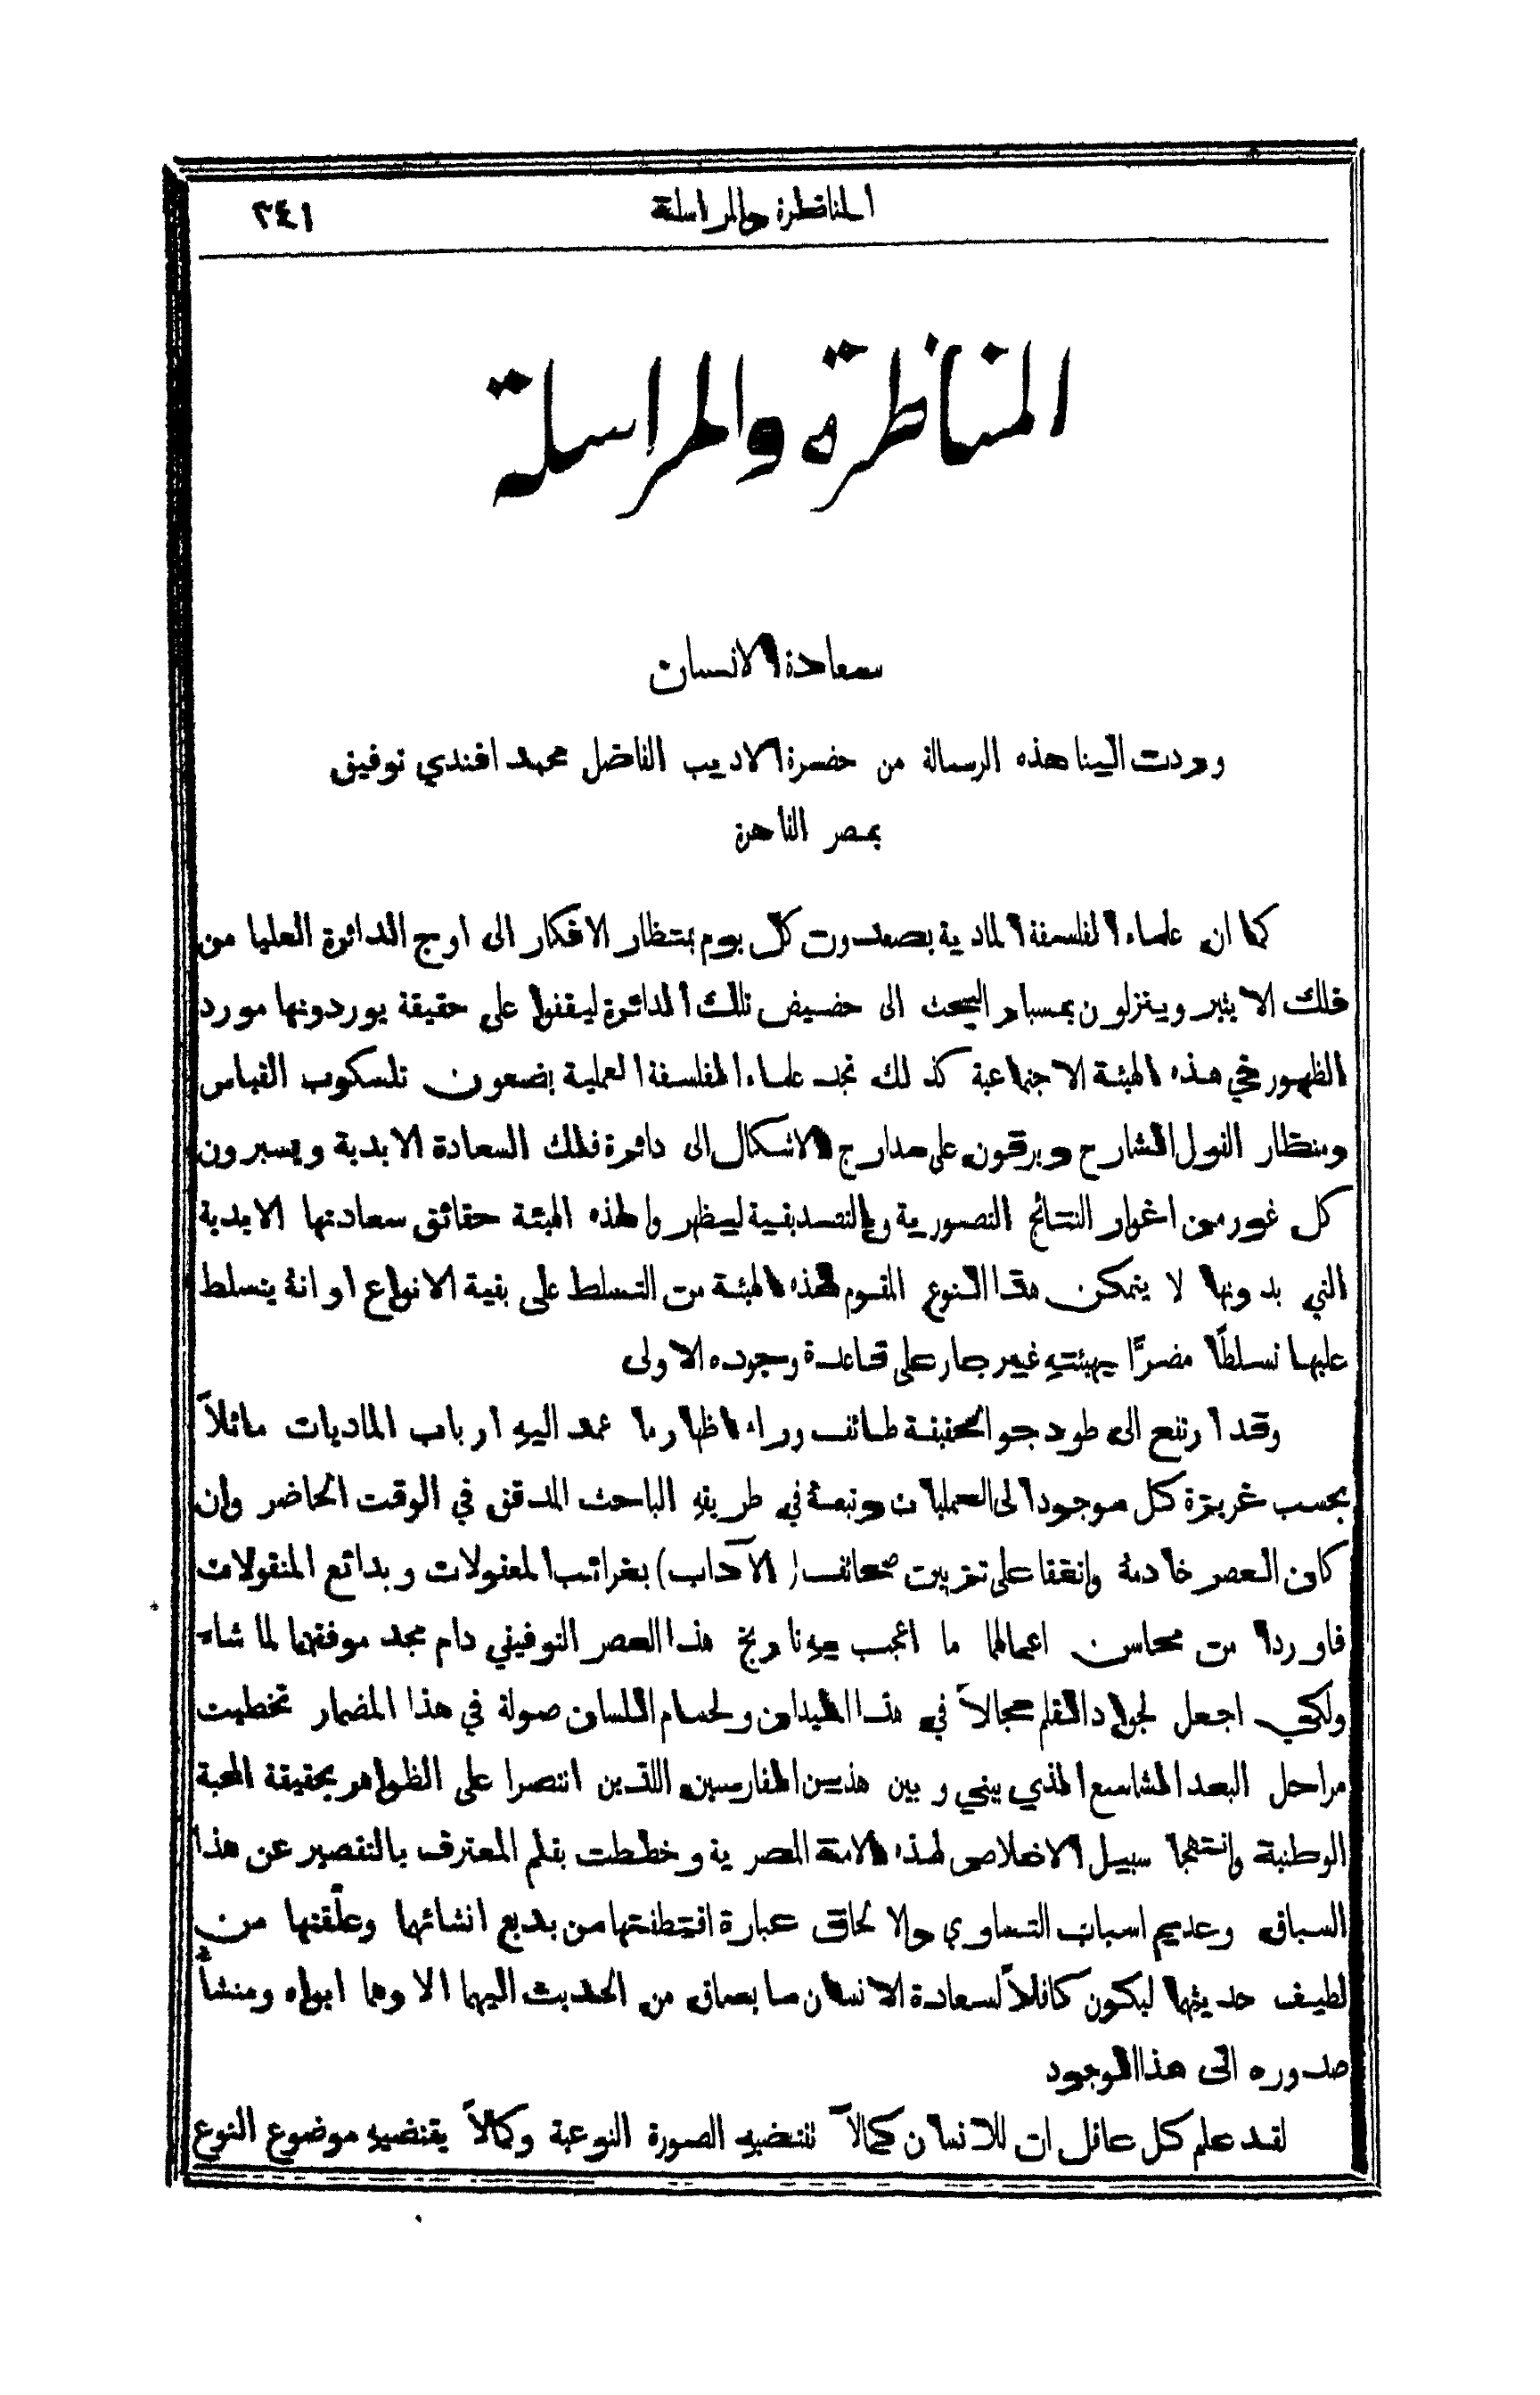 المناظرة والمراسلة
٣٤١
المناظرة والمراسلة
سعادة الانسان
وردت الينا هذه الرسالة من حضرة الاديب الفاضل محمد افندي توفيق
بمصر القاهرة
كما ان علماء الفلسفة المادية يصعدون كل يوم بمنظار الافكار الى اوج الدائرة العليا من
فلك الاثير وينزلون بمسبار البحث الى حضيض تلك الدائرة ليقفوا على حقيقة يوردونها مورد
الظهور في هذه الهيئة الاجتماعية كذلك نجد علماء الفلسفة العملية يضعون تلسكوب القياس
ومنظار القول الشارح ويرقون على مدارج الاشكال الى دائرة فلك السعادة الابدية ويسبرون
كل غور من اغوار النتائج التصورية والتصديقية ليظهروا لهذه الهيئة حقائق سعادتها الابدية
التي بدونها لا يتمكن هذا النوع المقوم لهذه الهيئة من التسلط على بقية الانواع او انهُ يتسلط
عليها تسلطًا مضرًّا بهيئتهِ غير جار على قاعدة وجوده الاولى
وقد ارتفع الى طود جو الحقيقة طائف وراء اظهار ما عمد اليهِ ارباب الماديات مائلاً
بحسب غريزة كل موجود الى العمليات وتبعهُ في طريقهِ الباحث المدقق في الوقت الحاضر وان
كان العصر خادمهُ واتفقا على تزيين صحائف (الآداب) بغرائب المعقولات وبدائع المنقولات
فاوردا من محاسن اعمالهما ما اعجب بهِ تاريخ هذا العصر التوفيقي دام مجد موفقهما لما شاء
ولكي اجعل لجواد القلم مجالاً في هذا الميدان ولحسام اللسان صولة في هذا المضمار تخطيت
مراحل البعد الشاسع الذي بيني وبين هذين الفارسين اللذين انتصرا على الظواهر بحقيقة المحبة
الوطنية وانتهجا سبيل الاخلاص لهذه الامة المصرية وخططت بقلم المعترف بالتقصير عن هذا
السباق وعديم اسباب التساوي والالحاق عبارة اقتطفتها من بديع انشائهما وعلّقتها من
لطيف حديثهما ليكون كافلاً لسعادة الانسان ما بعماق من الحديث اليهما الا وهما ابواه ومنشأُ
صدوره الى هذا الوجود
لقد علم كل عاقل ان للانسان كمالاً تقتضيهِ الصورة النوعية وكمالاً يقتضيهِ موضوع النوع